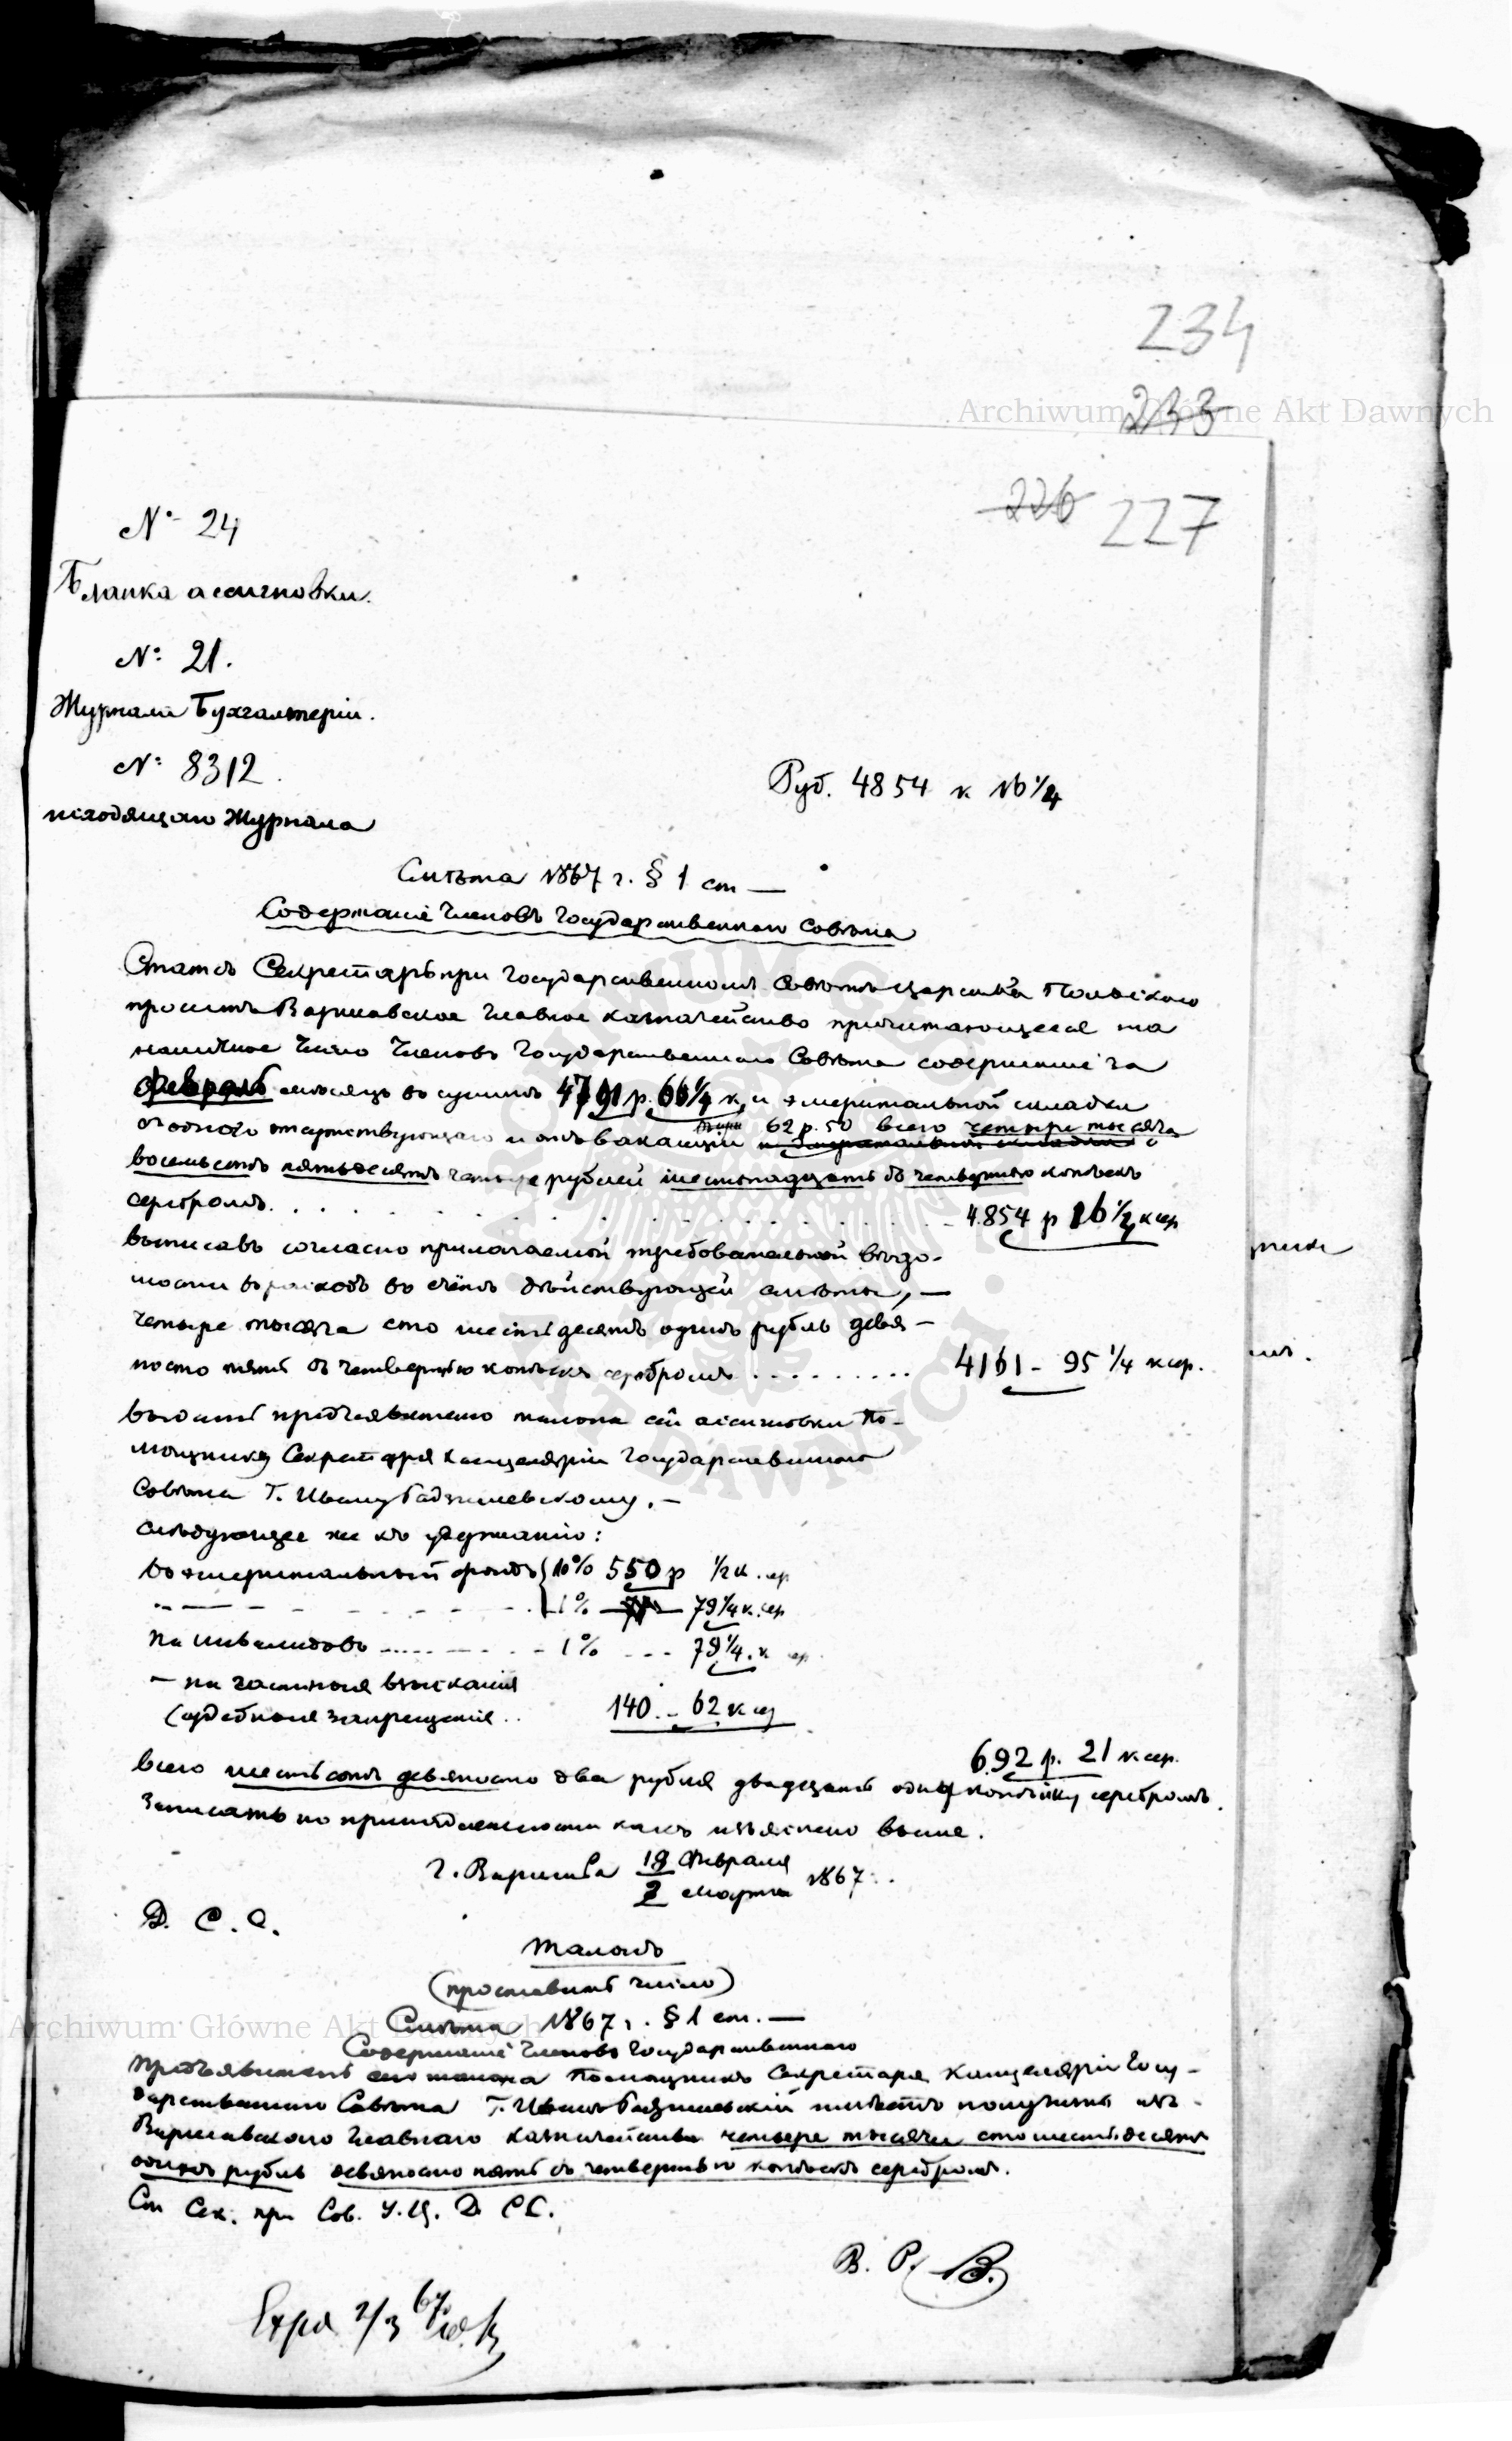 234
Archiwum Główne Akt Dawnych
233
226 227
№ 24
Бланка ассигновки.
№ 21.
Журнала Бухгалтеріи.
№ 8312
исходящаго Журнала
Руб. 4854 к 16 1/4
Смѣта 1867 г. § 1 ст —
Содержаніе Членовъ Государственнаго Совѣта
Статсъ Секретарь при Государственномъ Совѣтѣ Царства Польскаго
проситъ Варшавское Главное Казначейство причитающееся на
наличное число Членовъ Государственнаго Совѣта содержаніе за
Февраль мѣсяцъ въ суммѣ 4791 р. 66 1/4 к, и эмеритальной складки
отсутствующаго и отъ вакансіи 62 р. 50 всего четыре тысячи
восемьсотъ пятьдесятъ четыре рублей шестнадцать съ четвертью копѣекъ
серебромъ. 4.854 р 16 1/4 к сер
выписавъ согласно прилагаемой требовательной вѣдо-
мости въ расходъ въ счетъ дѣйствующей смѣты, —
четыре тысячи сто шестьдесятъ одинъ рубль девя-
носто пять съ четвертью копѣекъ серебромъ . . . . . . . . . 4161 - 95 1/4 к сер.
выдать предъявителю талона сей ассигновки По-
мощнику Секретаря Канцеляріи Государственнаго
Совѣта Г. Ивану .—
слѣдующее же къ удержанію:
въ эмеритальный фондъ 10% 550 р 1/2 к. сер
1% — 79 1/4 к. сер
на инвалидовъ 1% 79 1/4 к сер.
— на частныя взысканія
судебныя запрещенія .. 140. - 62 к сер
692 р. 21 к. сер.
всего шестьсотъ девяносто два рубля двадцать одну копѣйку серебромъ.
Записать по принадлежности какъ изъяснено выше.
г. Варшава 18 Февраля
2 Марта 1867 .
Д. С. С.
Талонъ
(проставить число)
Смѣта 1867 г. § 1 ст. —
Archiwum Główne Akt Dawnych
Содержаніе Членовъ Государственнаго
Предъявитель сего талона Помощникъ Секретаря Канцеляріи Госу-
дарственнаго Совѣта Г. Иванъ имѣетъ получить изъ
Варшавскаго Главнаго Казначейства четыре тысячи сто шестьдесятъ
одинъ рубль девяносто пять съ четвертью копѣекъ серебромъ.
Ст Сек. при Сов. У. Ц. Д С С.
В. Р. В.
Exp 2/3 67